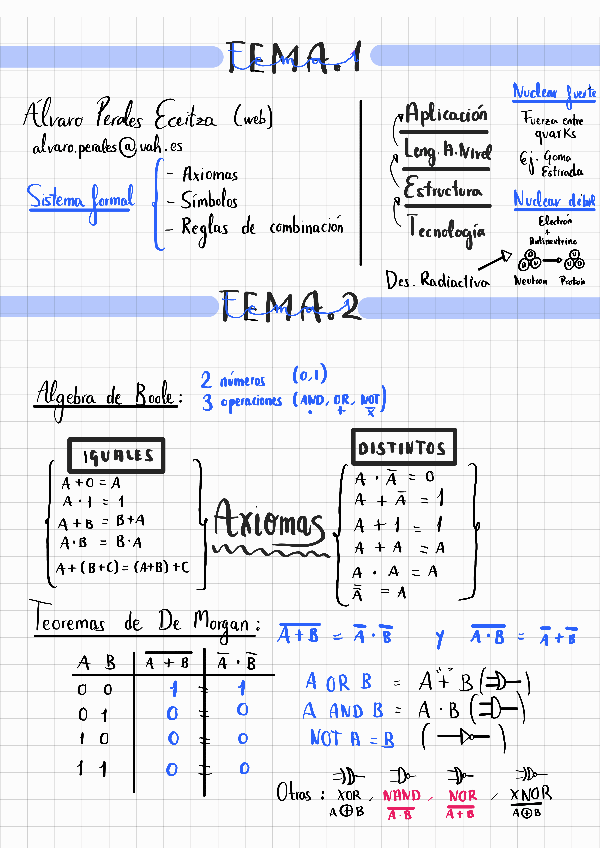 TEMA.1
Álvaro Perales Eceitza (web)
alvaro.perales@uah.es
Sistema formal
- Axiomas
- Símbolos
- Reglas de combinación
Aplicación
Leng. A. Nivel
Estructura
Tecnología
Des. Radiactiva
Nuclear fuerte
Fuerza entre
quarks
Ej. Goma
Estirada
Nuclear débil
Electrón
+
Antineutrino
Neutron Protón
TEMA.2
Algebra de Boole:
2 números (0,1)
3 operaciones (AND, OR, NOT)
· + x̅
IGUALES
A + 0 = A
A · 1 = 1
A + B = B + A
A · B = B · A
A + (B + C) = (A + B) + C
Axiomas
DISTINTOS
A · A̅ = 0
A + A̅ = 1
A + 1 = 1
A + A = A
A · A = A
A̅̅ = A
Teoremas de De Morgan:
A̅ ̅+̅ ̅B̅ = A̅ · B̅ y A̅ ̅·̅ ̅B̅ = A̅ + B̅
A B A̅ ̅+̅ ̅B̅ A̅ · B̅
0 0 1 = 1
0 1 0 = 0
1 0 0 = 0
1 1 0 = 0
A OR B = A "+" B
A AND B = A · B
NOT A = B
Otras: XOR, NAND, NOR, XNOR
A⊕B A̅·̅B̅ A̅+̅B̅ A̅⊕̅B̅